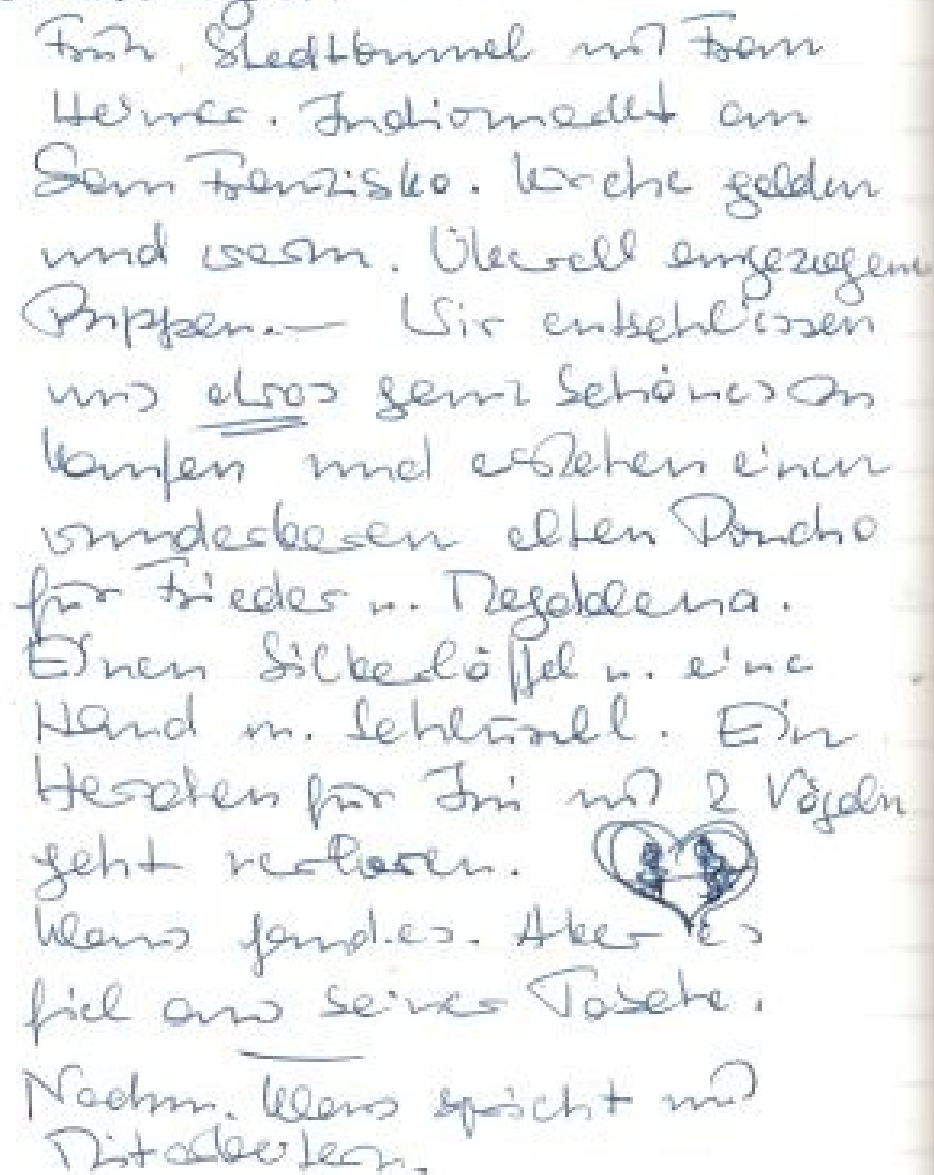 Früh. Stadtbummel mit Frau
Heimer. Indiomarkt an
San Franzisko. Kirche golden
und warm. Überall angezogene
Puppen.— Wir entschliessen
uns etwas ganz Schönes zu
kaufen und erstehen einen
wunderbaren alten Poncho
für Frieder u. Magdalena.
Einen Silberlöffel u. eine
Hand m. Schlüssel. Ein
Herzchen für Imi mit 2 Vögeln
geht verloren.
Klaus fand es. Aber es
fiel aus seiner Tasche.
Nachm. Klaus spricht mit
Mitarbeitern.